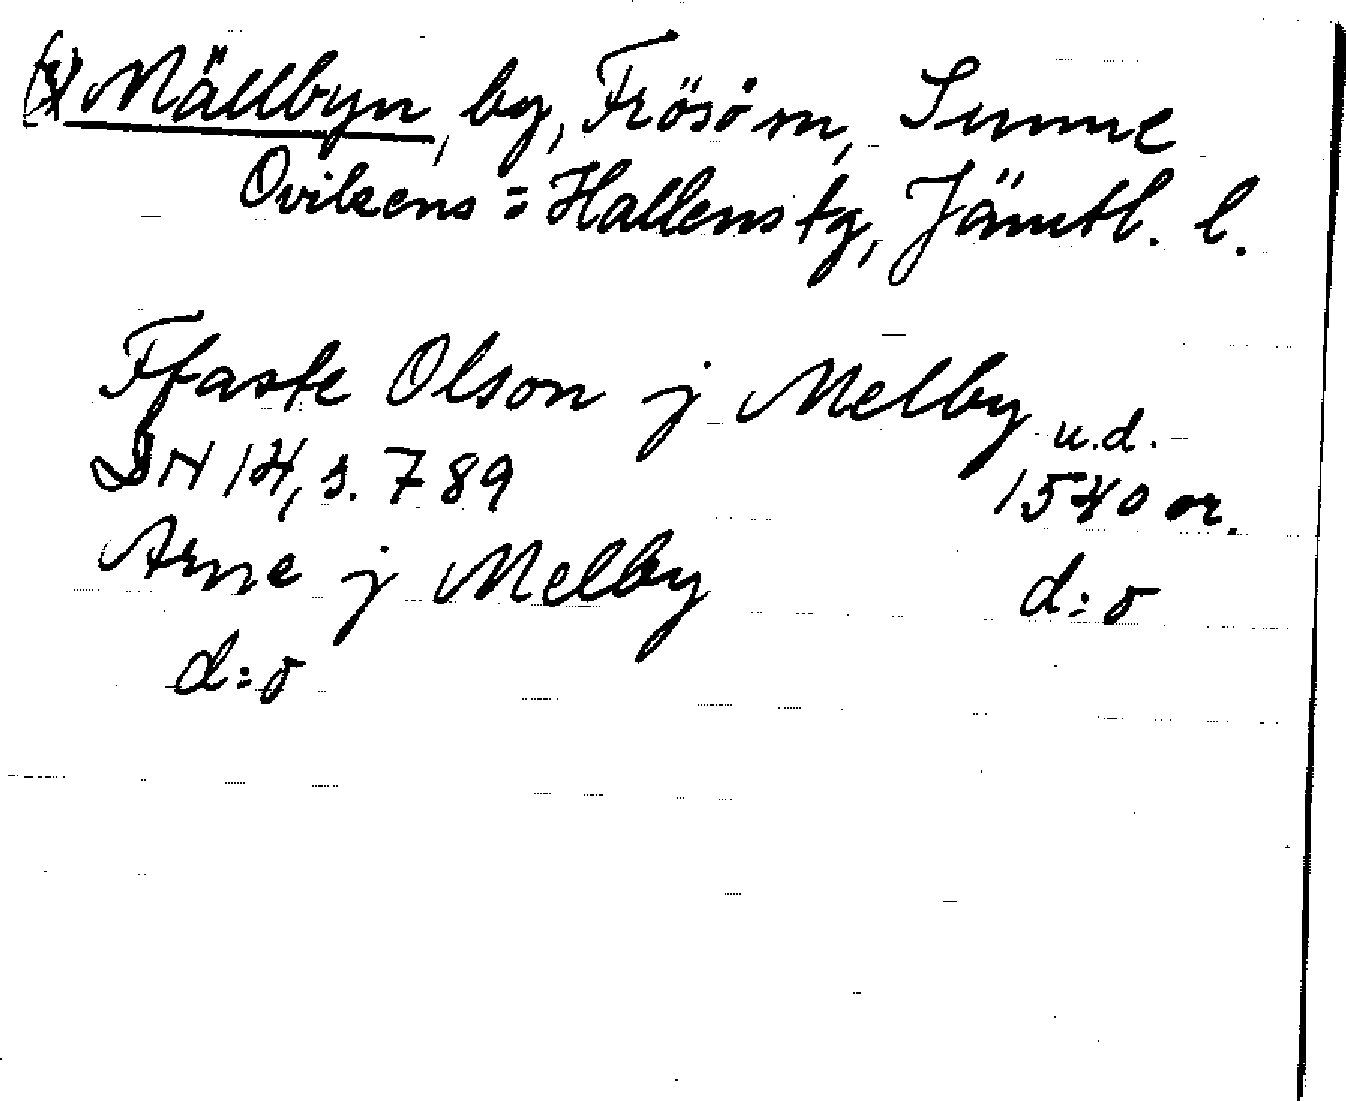 Mällbyn, by, Frösö sn, Sunne
Ovikens=Hallens tg, Jämtl. l.
Ffaste Olson j Melby u.d.
DN 14, s. 789 1540 or.
Arne j Melby d:o
d:o